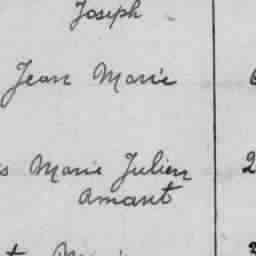 Joseph
Jean Marie
s Marie Julien 2
amant